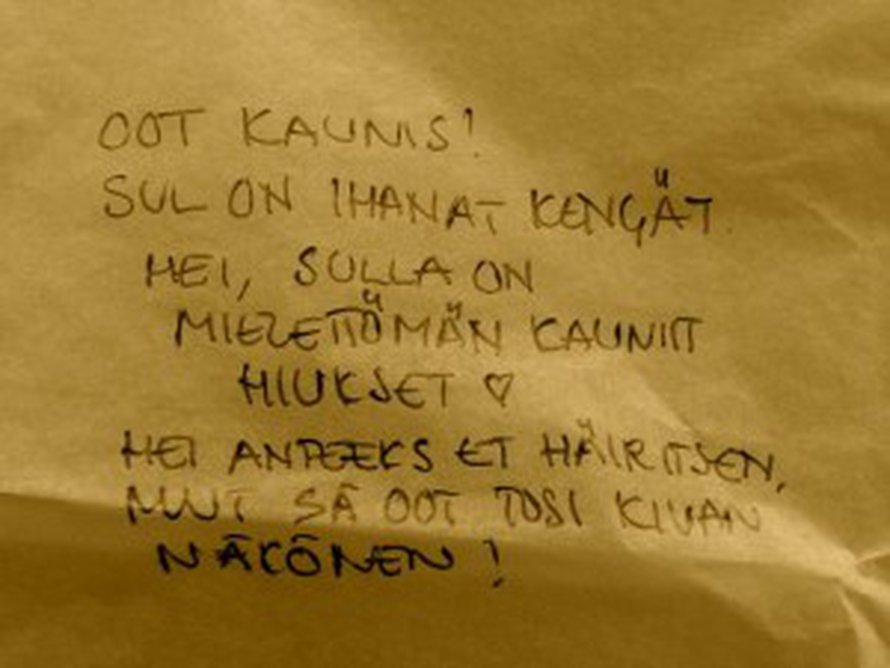 OOT KAUNIS!
SUL ON IHANAT KENGÄT.
HEI, SULLA ON
MIELETTÖMÄN KAUNIIT
HIUKSET ♡
HEI ANTEEKS ET HÄIRITSEN,
MUT SÄ OOT TOSI KIVAN
NÄKÖNEN!